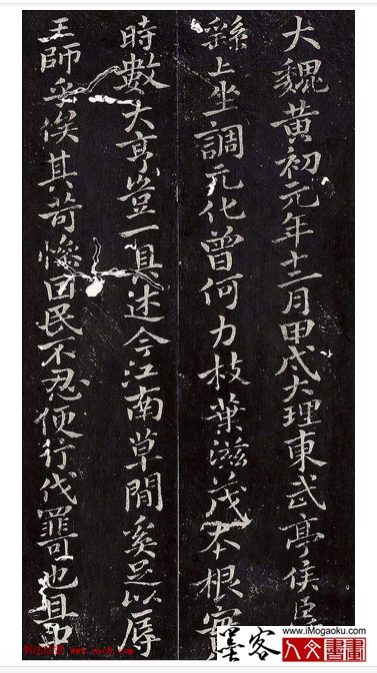 大魏黄初元年十二月甲戌大理東武亭侯臣
繇上坐調元化曾何力枝葉滋茂本根
時數大亨豈一具述今江南草間奚足以辱
王師乎俟其苛慘困民不忍便行伐罪可也且
墨客
www.iMogaoku.com